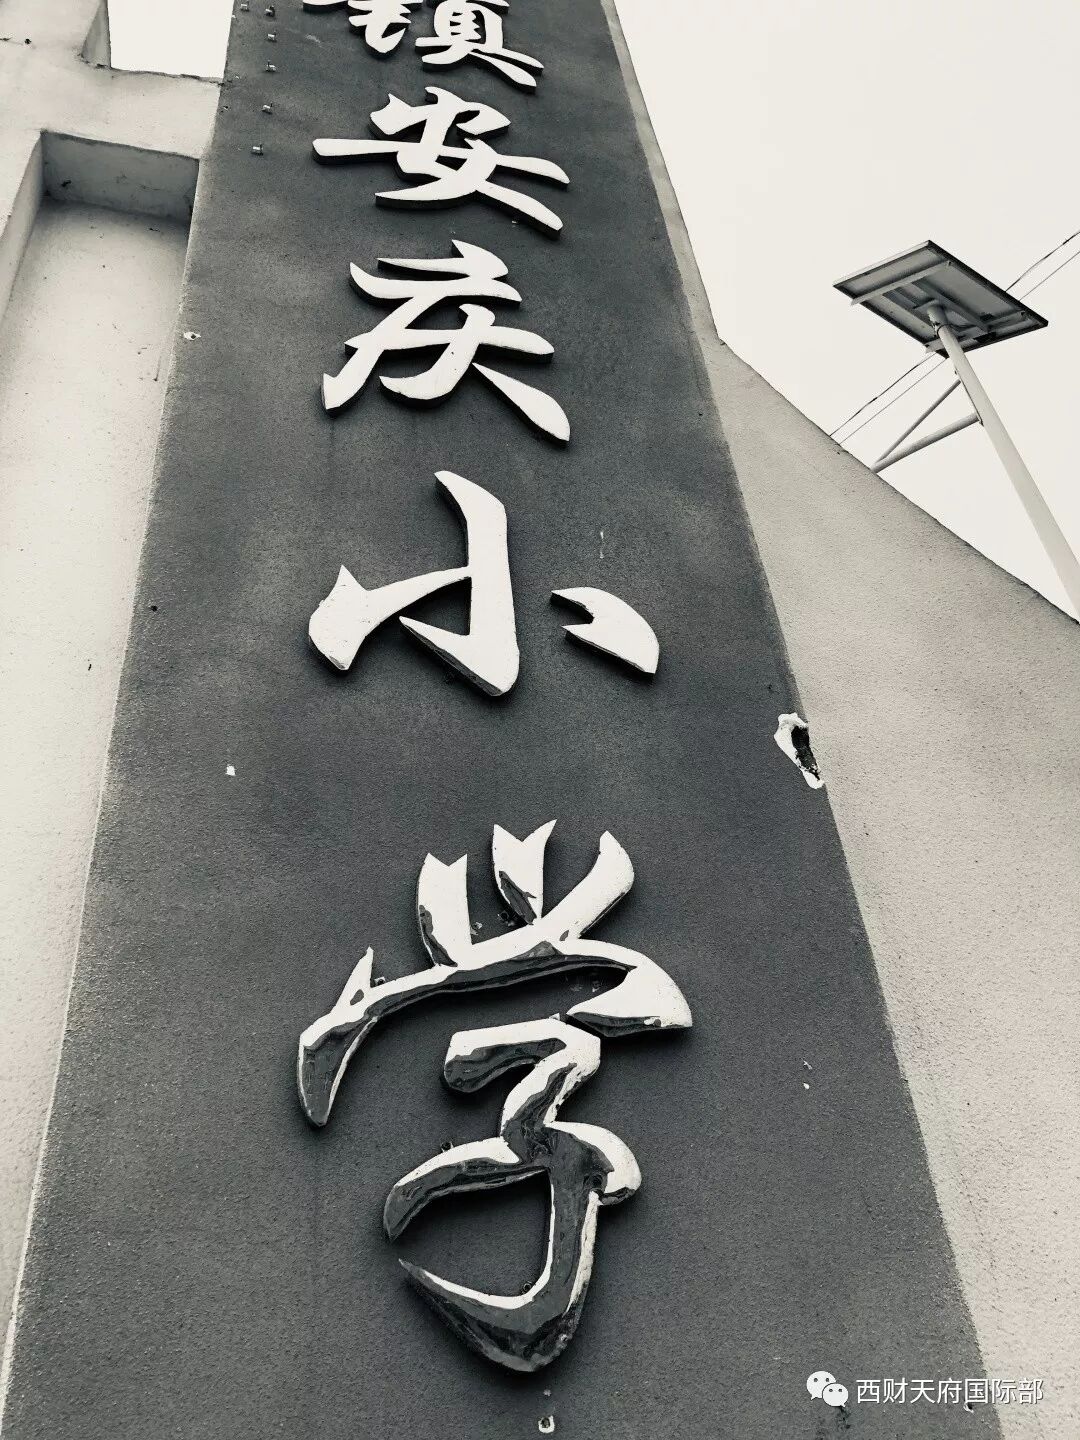 镇安庆小学
西财天府国际部